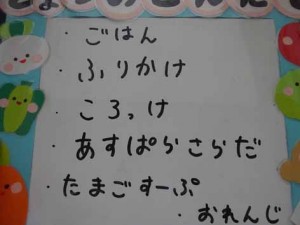 ・ごはん
・ふりかけ
・ころっけ
・あすぱらさらだ
・たまごすーぷ
・おれんじ